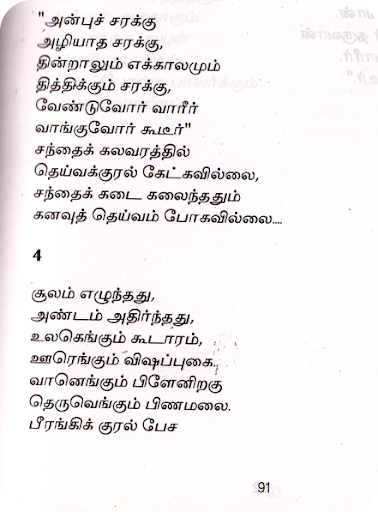 "அன்புச் சரக்கு
அழியாத சரக்கு,
தின்றாலும் எக்காலமும்
தித்திக்கும் சரக்கு,
வேண்டுவோர் வாரீர்
வாங்குவோர் கூடீர்"
சந்தைக் கலவரத்தில்
தெய்வக்குரல் கேட்கவில்லை,
சந்தைக் கடை கலைந்ததும்
கனவுத் தெய்வம் போகவில்லை....
4
சூலம் எழுந்தது,
அண்டம் அதிர்ந்தது,
உலகெங்கும் கூடாரம்,
ஊரெங்கும் விஷப்புகை.
வானெங்கும் பிளேனிறகு
தெருவெங்கும் பிணமலை.
பீரங்கிக் குரல் பேச
91